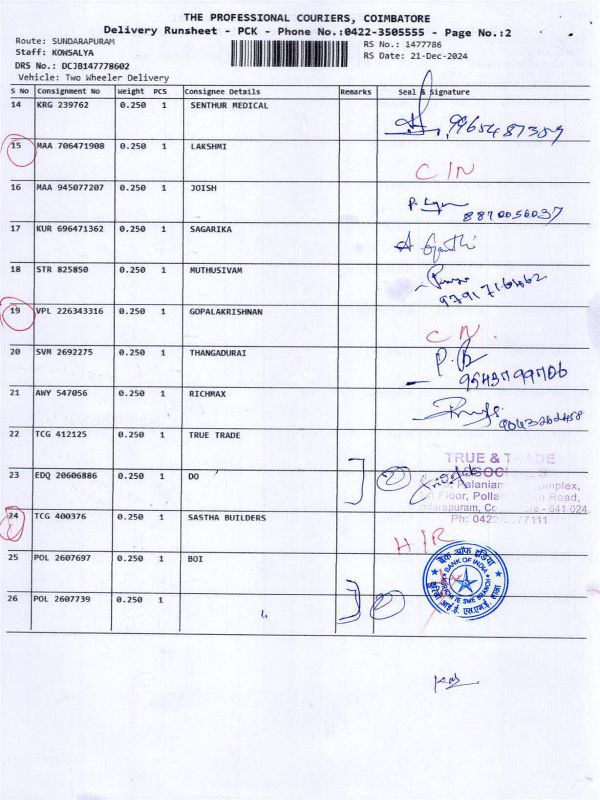 THE PROFESSIONAL COURIERS, COIMBATORE
Delivery Runsheet - PCK - Phone No.:0422-3505555 - Page No.:2
Route: SUNDARAPURAM RS No.: 1477786
Staff: KOWSALYA RS Date: 21-Dec-2024
DRS No.: DCJB147778602
Vehicle: Two Wheeler Delivery
S No Consignment No Weight PCS Consignee Details Remarks Seal & Signature
14 KRG 239762 0.250 1 SENTHUR MEDICAL
9965487359
15 MAA 706471908 0.250 1 LAKSHMI
C/N
16 MAA 945077207 0.250 1 JOISH
8870056037
17 KUR 696471362 0.250 1 SAGARIKA
18 STR 825850 0.250 1 MUTHUSIVAM
19 VPL 226343316 0.250 1 GOPALAKRISHNAN
C N.
20 SVM 2692275 0.250 1 THANGADURAI
P.
9543799706
21 AWY 547056 0.250 1 RICHMAX
22 TCG 412125 0.250 1 TRUE TRADE
TRUE & TRADE
23 EDQ 20606886 0.250 1 DO 2
Floor, Road,
641 024
Ph: 0422
24 TCG 400376 0.250 1 SASTHA BUILDERS
H/R
25 POL 2607697 0.250 1 BOI
बैंक ऑफ इंडिया
BANK OF INDIA
SME BRANCH
26 POL 2607739 0.250 1 2